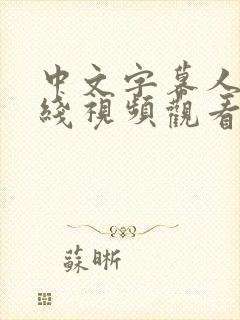 中文字幕人
綫視頻觀看
蘇晰